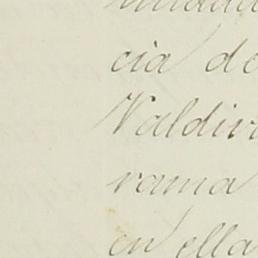 cia de
Valdiv
rama
en ella